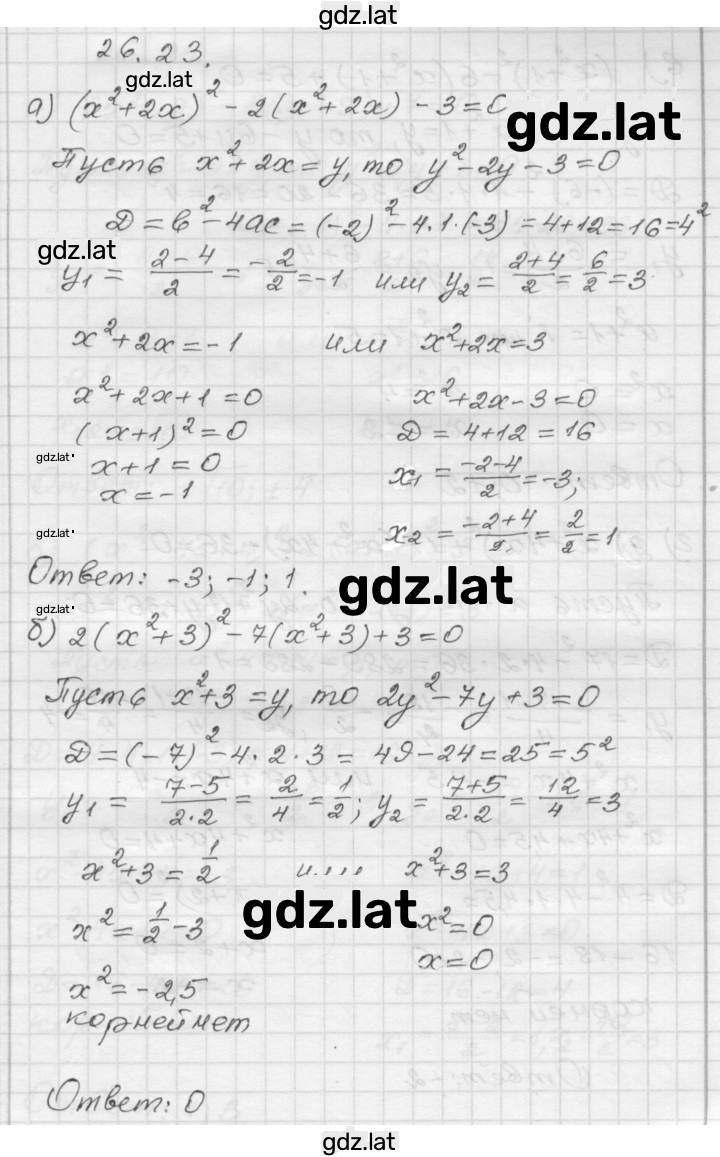 gdz.lat
26.23.
gdz.lat
а) (x²+2x)² - 2(x²+2x) - 3=0
gdz.lat
Пусть x²+2x=y, то y²-2y-3=0
D=b²-4ac=(-2)²-4·1·(-3)=4+12=16=4²
gdz.lat
y₁ = (2-4)/2 = -2/2 = -1 или y₂ = (2+4)/2 = 6/2 = 3
x²+2x=-1 или x²+2x=3
x²+2x+1=0 x²+2x-3=0
(x+1)²=0 D=4+12=16
gdz.lat
x+1=0 x₁ = (-2-4)/2 = -3;
x=-1
gdz.lat
x₂ = (-2+4)/2 = 2/2 = 1
Ответ: -3; -1; 1.
gdz.lat
gdz.lat
б) 2(x²+3)²-7(x²+3)+3=0
Пусть x²+3=y, то 2y²-7y+3=0
D=(-7)²-4·2·3= 49-24=25=5²
y₁ = (7-5)/(2·2) = 2/4 = 1/2; y₂ = (7+5)/(2·2) = 12/4 = 3
x²+3=1/2 или x²+3=3
gdz.lat
x²=1/2-3 x²=0
x=0
x²=-2,5
корней нет
Ответ: 0
gdz.lat